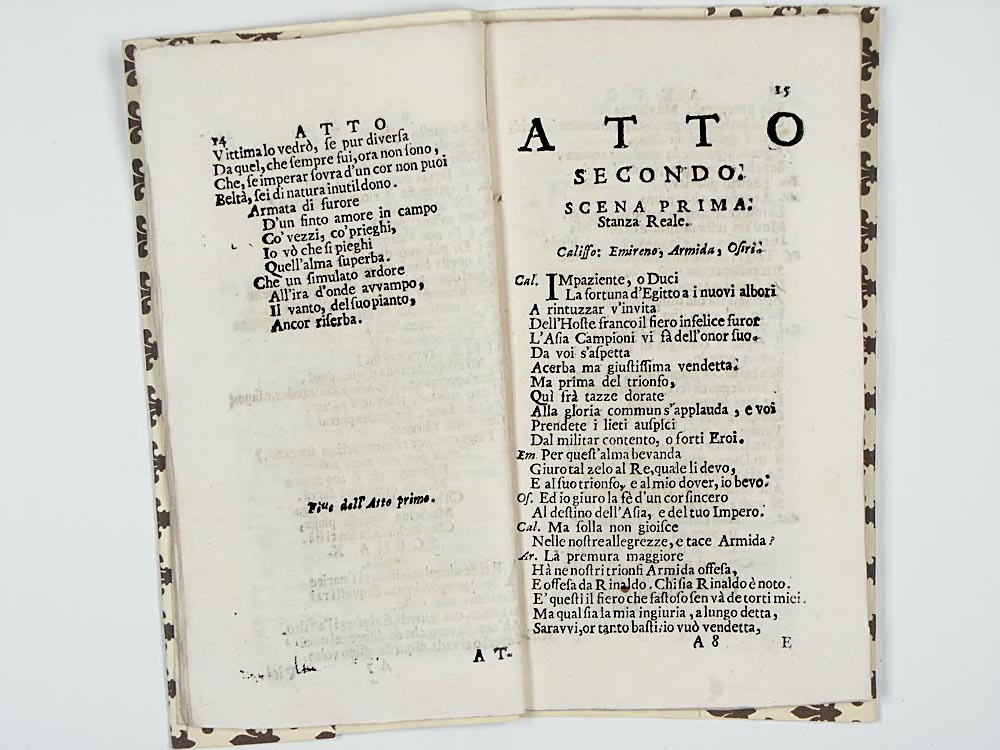 14
ATTO
Vittima lo vedrò, se pur diversa
Da quel, che sempre fui, ora non sono,
Che, se imperar sovra d'un cor non puoi
Beltà, sei di natura inutil dono.
Armata di furore
D'un finto amore in campo
Co' vezzi, co' prieghi,
Io vò che si pieghi
Quell'alma superba.
Che un simulato ardore
All'ira d'onde avvampo,
Il vanto, del suo pianto,
Ancor riserba.
Fine dell'Atto primo.
AT-
15
ATTO
SECONDO.
SCENA PRIMA.
Stanza Reale.
Calisso: Emireno, Armida, Osiri.
Cal. IMpaziente, o Duci
La fortuna d'Egitto a i nuovi albori
A rintuzzar v'invita
Dell'Hoste franco il fiero infelice furor
L'Asia Campioni vi fà dell'onor suo.
Da voi s'aspetta
Acerba ma giustissima vendetta.
Ma prima del trionfo,
Quì frà tazze dorate
Alla gloria commun s'applauda, e voi
Prendete i lieti auspici
Dal militar contento, o forti Eroi.
Em Per quest'alma bevanda
Giuro tal zelo al Re, quale li devo,
E al suo trionfo, e al mio dover, io bevo.
Os. Ed io giuro la fè d'un cor sincero
Al destino dell'Asia, e del tuo Impero.
Cal. Ma solla non gioisce
Nelle nostre allegrezze, e tace Armida?
Ar. La premura maggiore
Hà ne nostri trionfi Armida offesa,
E offesa da Rinaldo. Chi sia Rinaldo è noto.
E' questi il fiero che fastoso sen và de torti miei.
Ma qual sia la mia ingiuria, a lungo detta,
Saravvi, or tanto basti: io vuò vendetta,
A 8
E